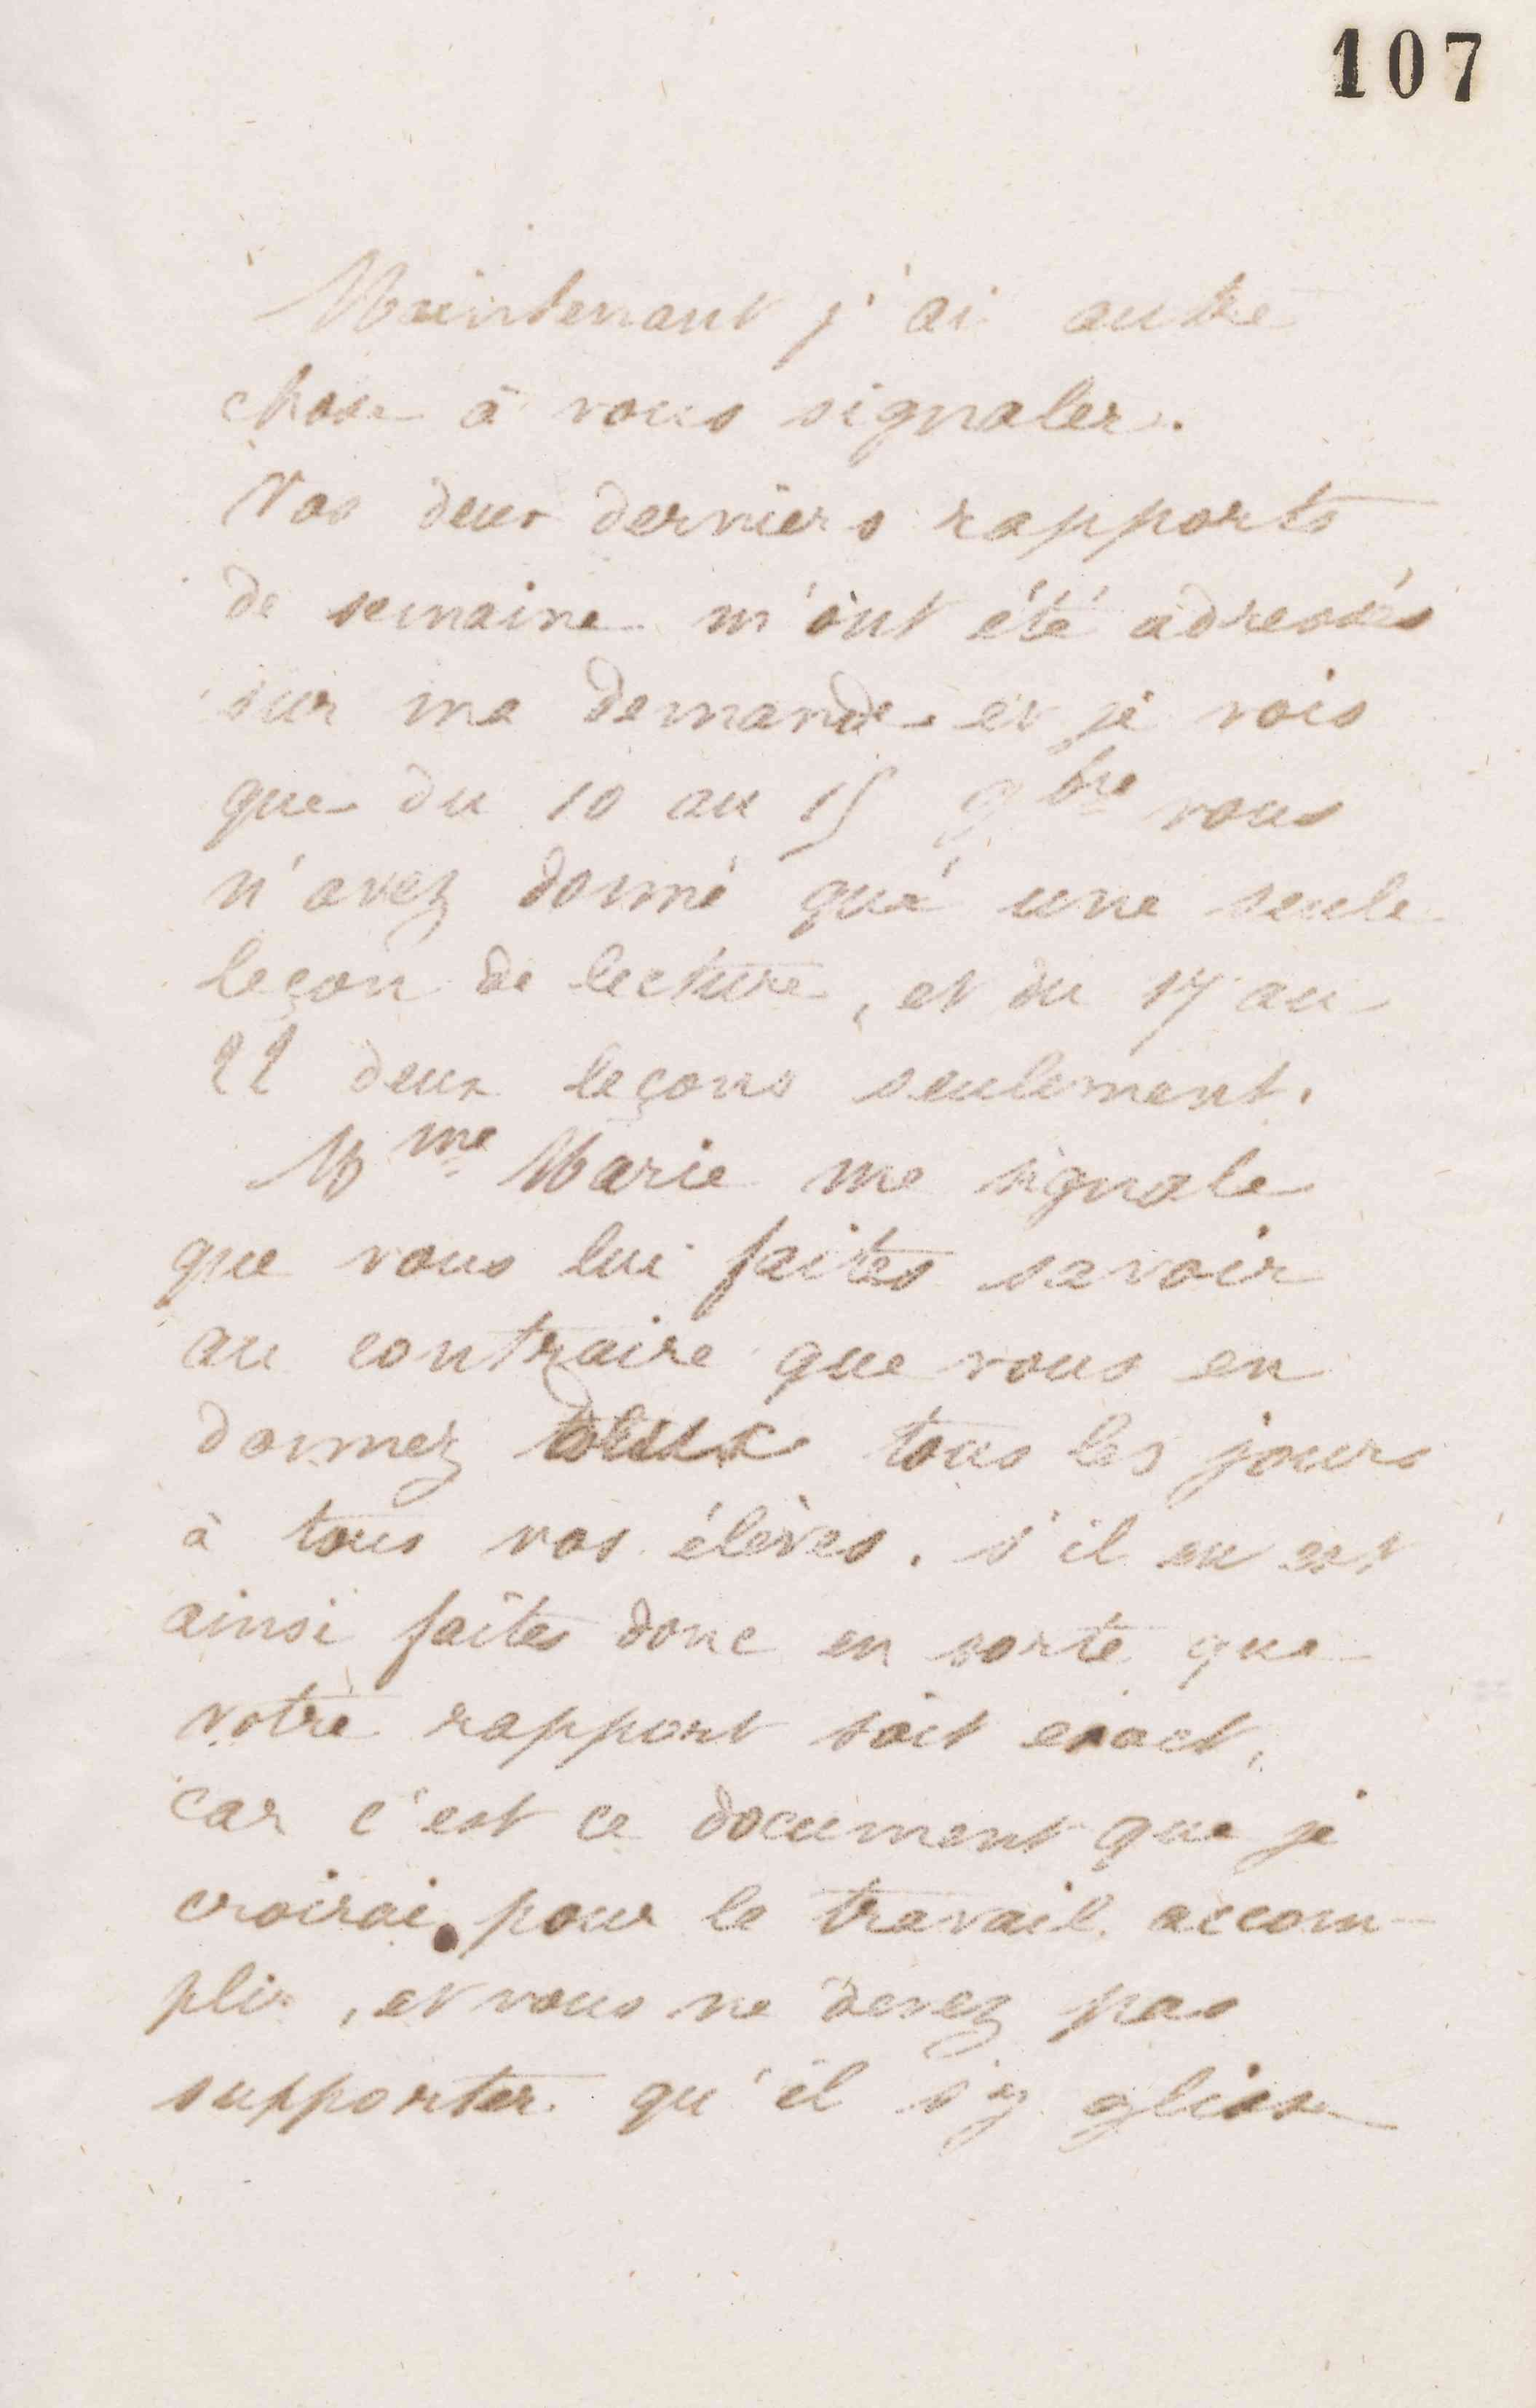 107
Maintenant j'ai autre
chose à vous signaler.
Vos deux derniers rapports
de semaine m'ont été adressés
sur ma demande et je vois
que du 10 au 15 9bre vous
n'avez donné qu'une seule
leçon de lecture, et du 17 au
22 deux leçons seulement.
Mme Marie me signale
que vous lui faites savoir
au contraire que vous en
donnez deux tous les jours
à tous vos élèves. s'il en est
ainsi faites donc en sorte que
votre rapport soit exact,
car c'est ce document que je
croirai pour le travail accom-
pli, et vous ne devez pas
supporter qu'il s'y glisse